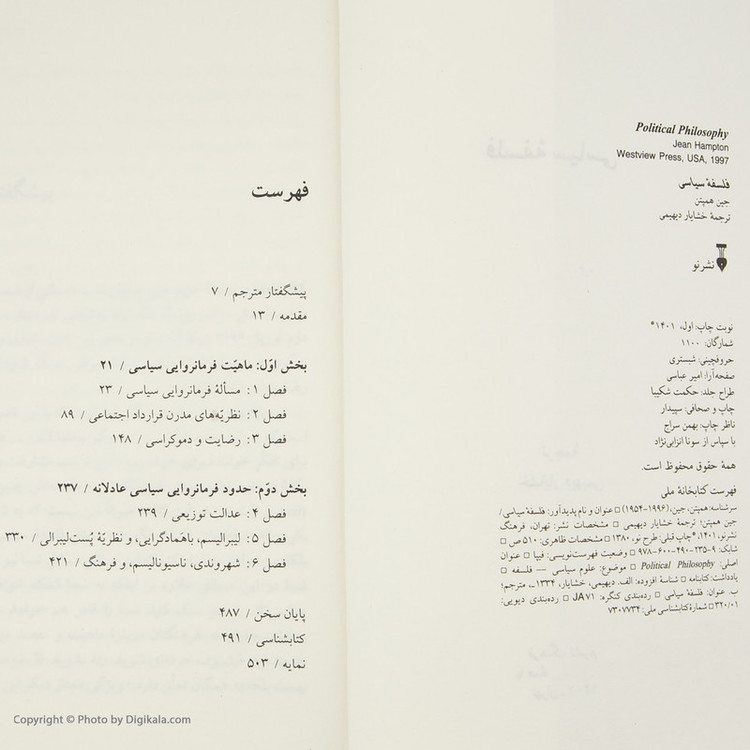 Political Philosophy
Jean Hampton
Westview Press, USA, 1997
فلسفهٔ سیاسی
جین همپتن
ترجمهٔ خشایار دیهیمی
نشرنو
نوبت چاپ: اول، ۱۴۰۱*
شمارگان: ۱۱۰۰
حروفچینی: شبستری
صفحه‌آرا: امیر عباسی
طراح جلد: حکمت شکیبا
چاپ و صحافی: سپیدار
ناظر چاپ: بهمن سراج
با سپاس از سونا انزابی‌نژاد
همهٔ حقوق محفوظ است.
فهرست کتابخانهٔ ملی
سرشناسه: همپتن، جین، (۱۹۹۶-۱۹۵۴) □ عنوان و نام پدیدآور: فلسفهٔ سیاسی/
جین همپتن؛ ترجمهٔ خشایار دیهیمی □ مشخصات نشر: تهران، فرهنگ
نشرنو، ۱۴۰۱. *چاپ قبلی: طرح نو، ۱۳۸۰ □ مشخصات ظاهری: ۵۱۰ ص □
شابک: ۹-۲۳۵-۴۹۰-۶۰۰-۹۷۸ □ وضعیت فهرست‌نویسی: فیپا □ عنوان
اصلی: Political Philosophy □ موضوع: علوم سیاسی — فلسفه □
یادداشت: کتابنامه □ شناسهٔ افزوده: الف. دیهیمی، خشایار، ۱۳۳۴ـ، مترجم؛
ب. عنوان: فلسفهٔ سیاسی □ رده‌بندی کنگره: JA۷۱ □ رده‌بندی دیویی:
۳۲۰/۰۱ □ شمارهٔ کتابشناسی ملی: ۷۳۰۷۷۳۴
فهرست
پیشگفتار مترجم / ۷
مقدمه / ۱۳
بخش اوّل: ماهیّت فرمانروایی سیاسی / ۲۱
فصل ۱: مسألهٔ فرمانروایی سیاسی / ۲۳
فصل ۲: نظریّه‌های مدرن قرارداد اجتماعی / ۸۹
فصل ۳: رضایت و دموکراسی / ۱۴۸
بخش دوّم: حدود فرمانروایی سیاسی عادلانه / ۲۳۷
فصل ۴: عدالت توزیعی / ۲۳۹
فصل ۵: لیبرالیسم، باهَمادگرایی، و نظریّهٔ پُست‌لیبرالی / ۳۳۰
فصل ۶: شهروندی، ناسیونالیسم، و فرهنگ / ۴۲۱
پایان سخن / ۴۸۷
کتابشناسی / ۴۹۱
نمایه / ۵۰۳
Copyright © Photo by Digikala.com